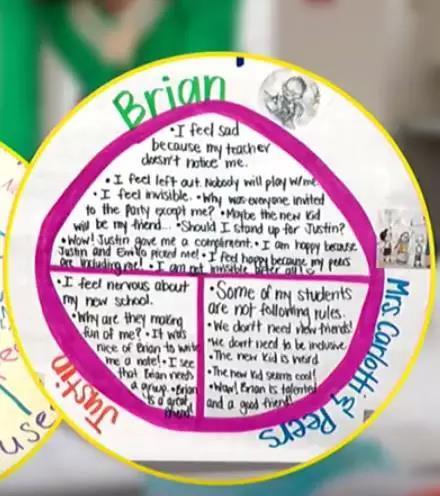 Brian
• I feel sad
because my teacher
doesn't notice me.
• I feel left out. Nobody will play w/me.
• I feel invisible. • Why was everyone invited
to the party except me? • Maybe the new kid
will be my friend... • Should I stand up for Justin?
• Wow! Justin gave me a compliment. • I am happy because
Justin and Emilio picked me! • I feel happy because my peers
are including me! • I am not invisible after all!
Justin
• I feel nervous about
my new school.
• Why are they making
fun of me? • It was
nice of Brian to write
me a note! • I see
that Brian needs
a group. • Brian
is a great
friend!
Mrs. Carlotti & Peers
• Some of my students
are not following rules.
• We don't need new friends!
• We don't need to be inclusive.
• The new kid is weird.
• The new kid seems cool!
• Wow! Brian is talented
and a good friend!
use